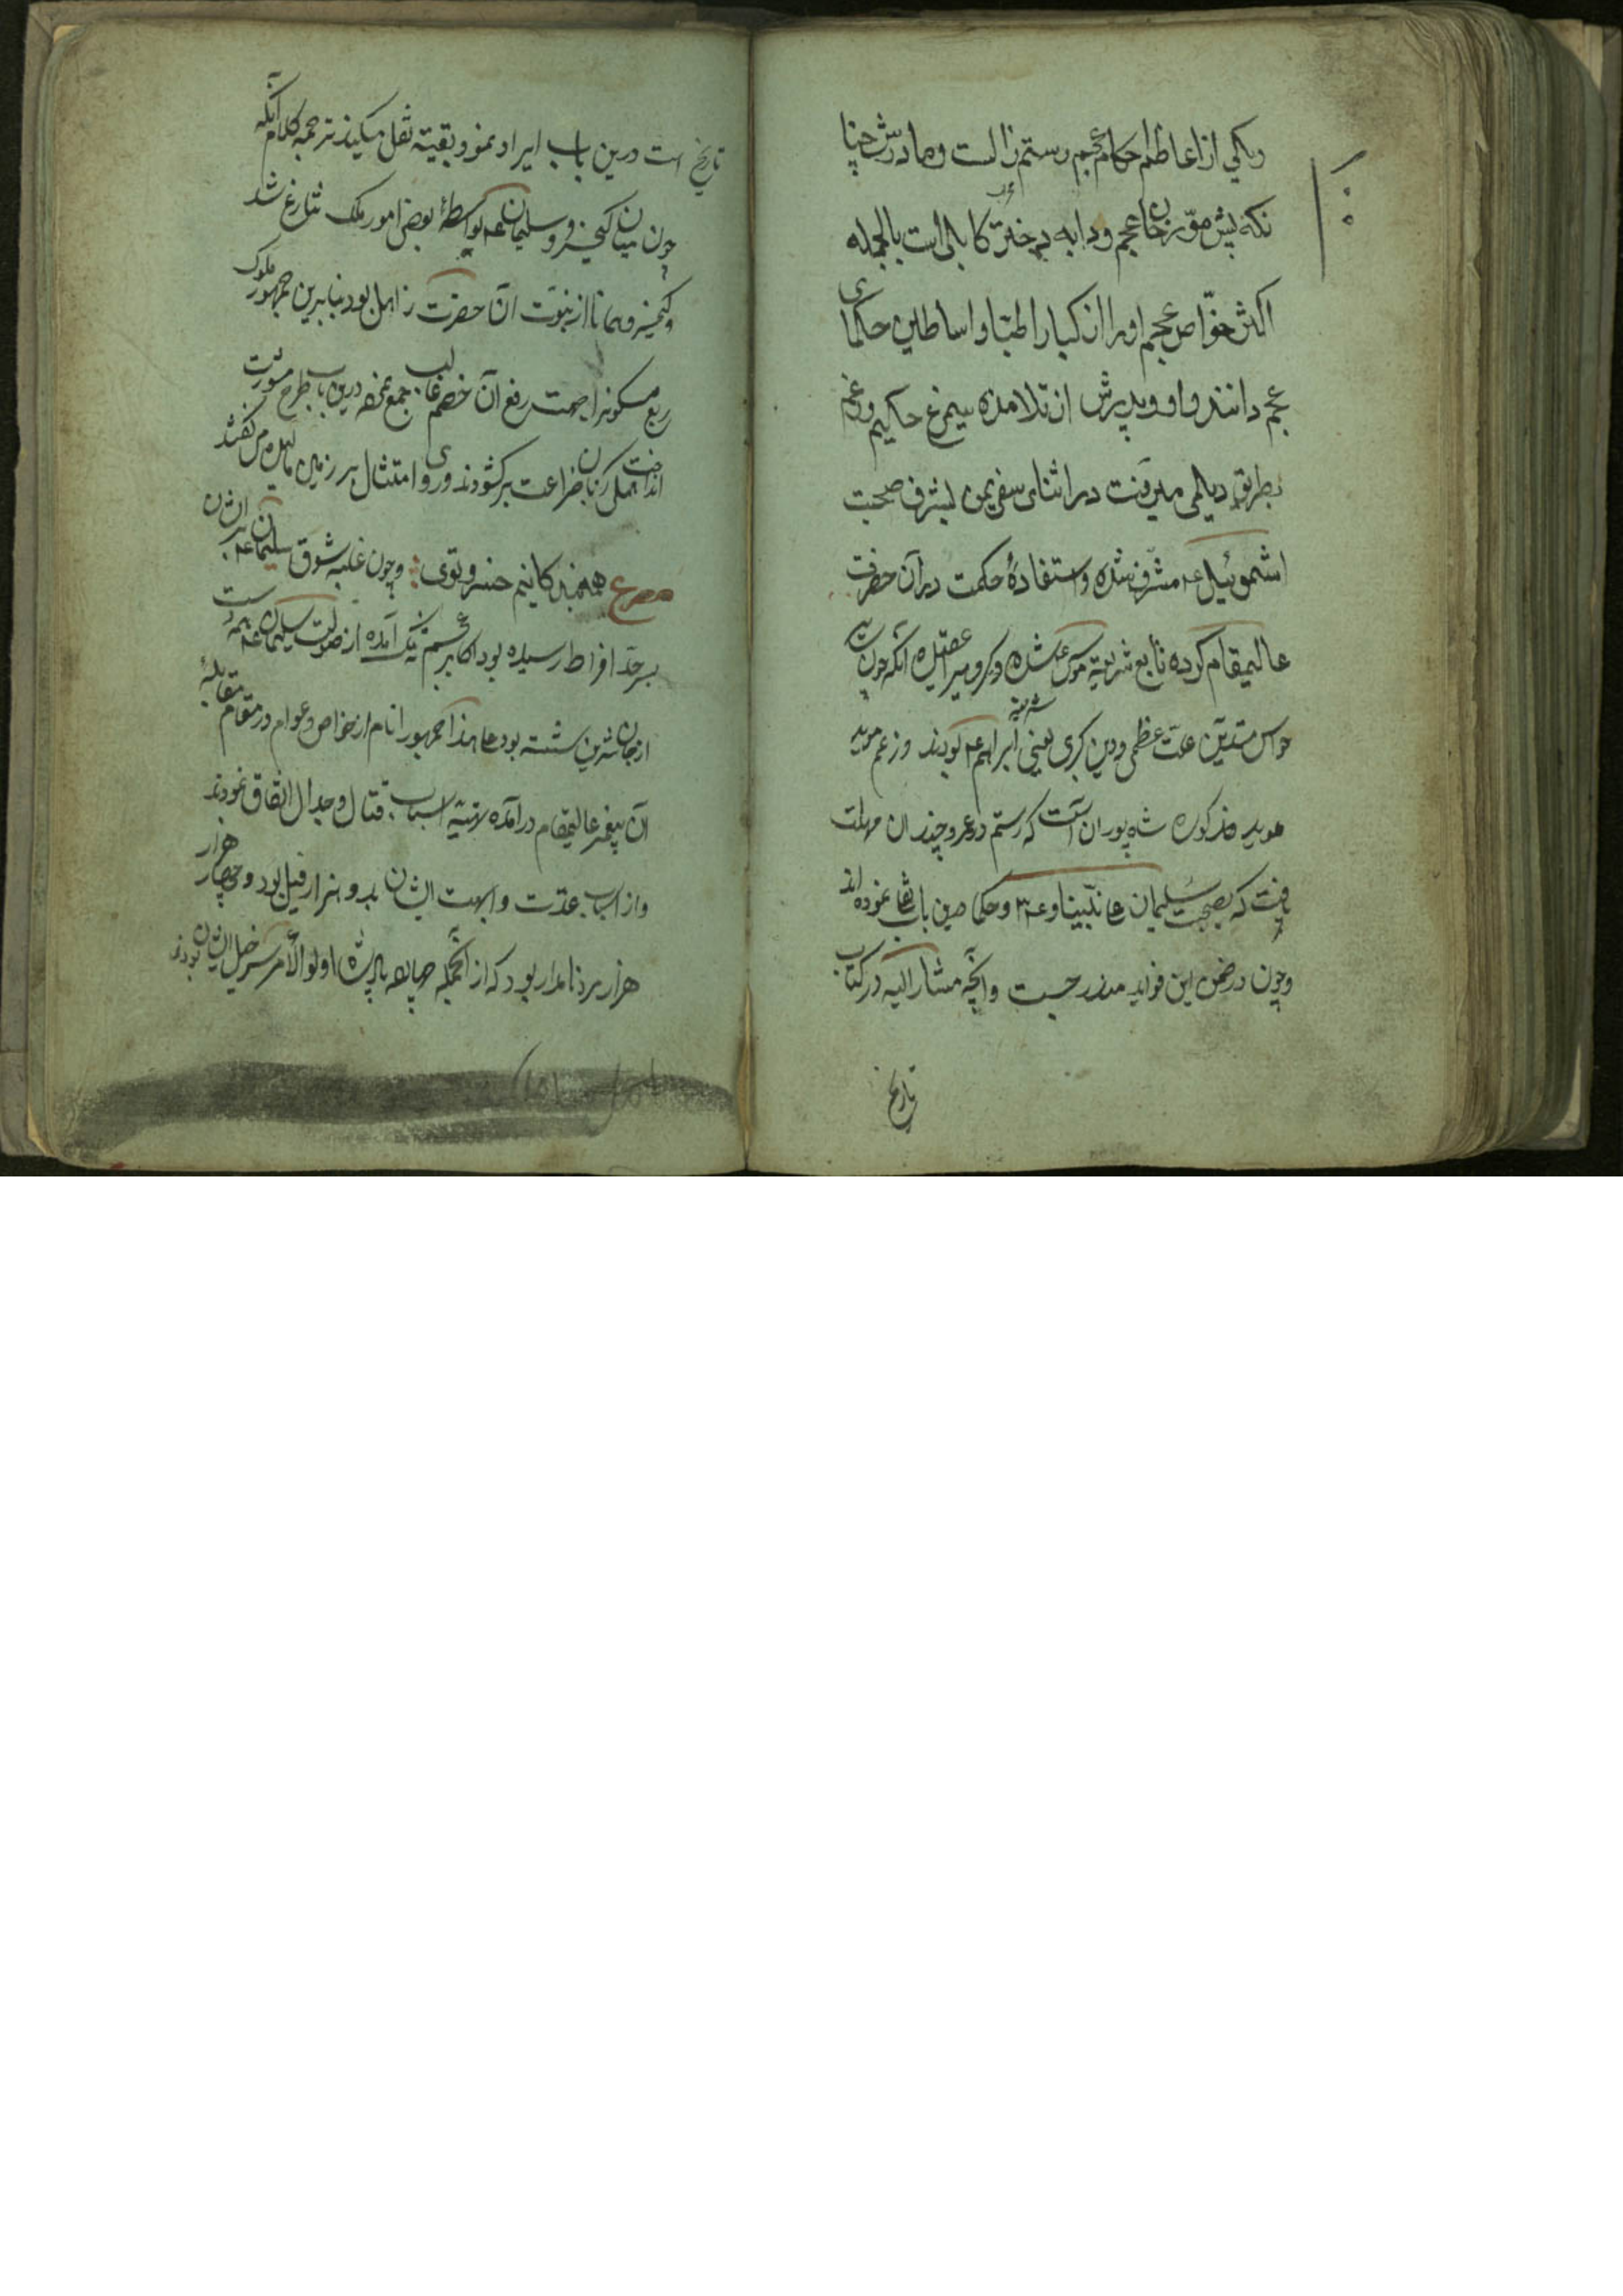 ویکی از اعاظم حکام عجم رستم زالست ومادرش چنا
نکه پیش مؤرخان عجم رودابه دختر کابلی است بالجمله
اکثر خوّاص عجم اورا از کبار اطبّا و اساطین حکمای
عجم دانند واو و پدرش از تلامذه سیمرغ حکیم وزعم
بطریق دیلمی میرفت در اثنای سفر یمن بشرف صحبت
اشموئیل ع م مشرّف شده واستفادهٔ حکمت در آن حضرت
عالیمقام کرده تابع شریعة موسی شده وکروهی را عقیده آنکه چون
حواس متدیّن ملّت عظمی ودین کبری یعنی ابراهیم ع م بودند وزعم موبد
موبد مذکور شاه پوران آنست که رستم در عمر چندان مهلت
یافت که بصحبت سلیمان علی نبینا وع م وحکما درین باب نموده اند
وچون در ضمن این فواید مندرجست وآنچه مشار الیه در کتاب
تاریخ
تاریخ است درین باب ایراد نمود بقیته نقل میکیند ترجمه کلام آنکه
چون میان کیخسرو وسلیمان ع م بواسطهٔ بعض امور ملک تنازع شد
وکیخسرو همانا از نبوّت آن حضرت ذاهل بود بنابرین جمهور ملوک
ربع مسکونرا جهت رفع آن خصم غالب جمع نموده درین باب طرح مشورت
انداخت همکی زبان ضراعت برکشودند وروی امتثال بر زمین نهاده گفتند
مصرع همه بندکانیم خسرو توی وچون غلبه شوق سلیمان ع م بر ایشان
بسر حدّ افراط رسیده بود اکابر عجم تنگ آمده از صولت سلیمان ع م
از جان شیرین شسته بود علی هذا جمهور انام از خواص وعوام در مقام مقابلهٔ
آن پیغمبر عالیمقام در آمده بر تهیّه اسباب قتال وجدال اتفاق نمودند
واز اسباب عدّت وابهت ایشان بود وهزار فیل بود وچهار هزار
هزار مرد نامدار بود که از آنجمله چهارصد پادشاه اولو الأمر سر خیل ایشان بودند